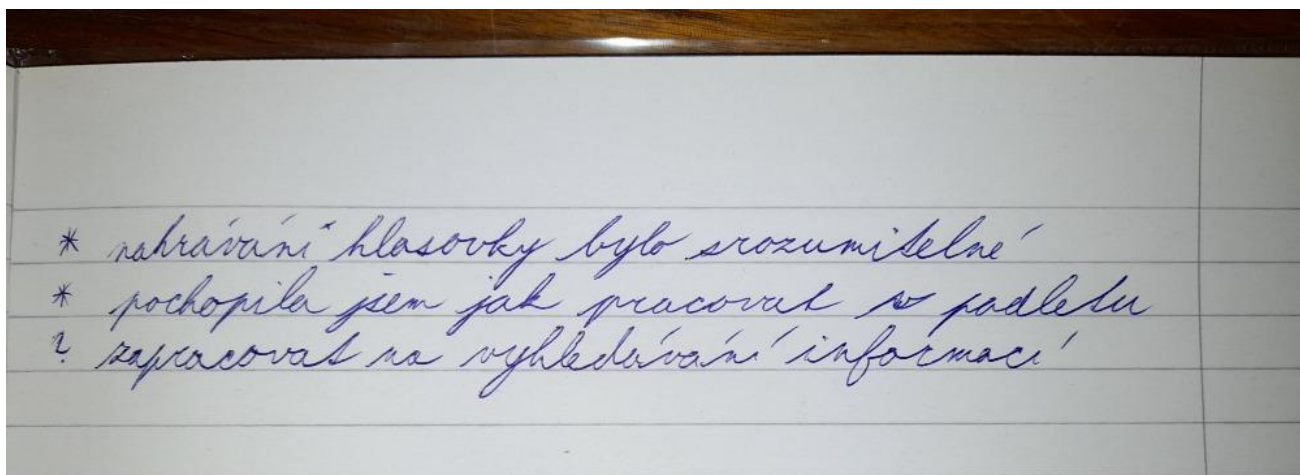 * nahrávání hlasovky bylo srozumitelné
* pochopila jsem jak pracovat v padletu
? zapracovat na vyhledávání informací